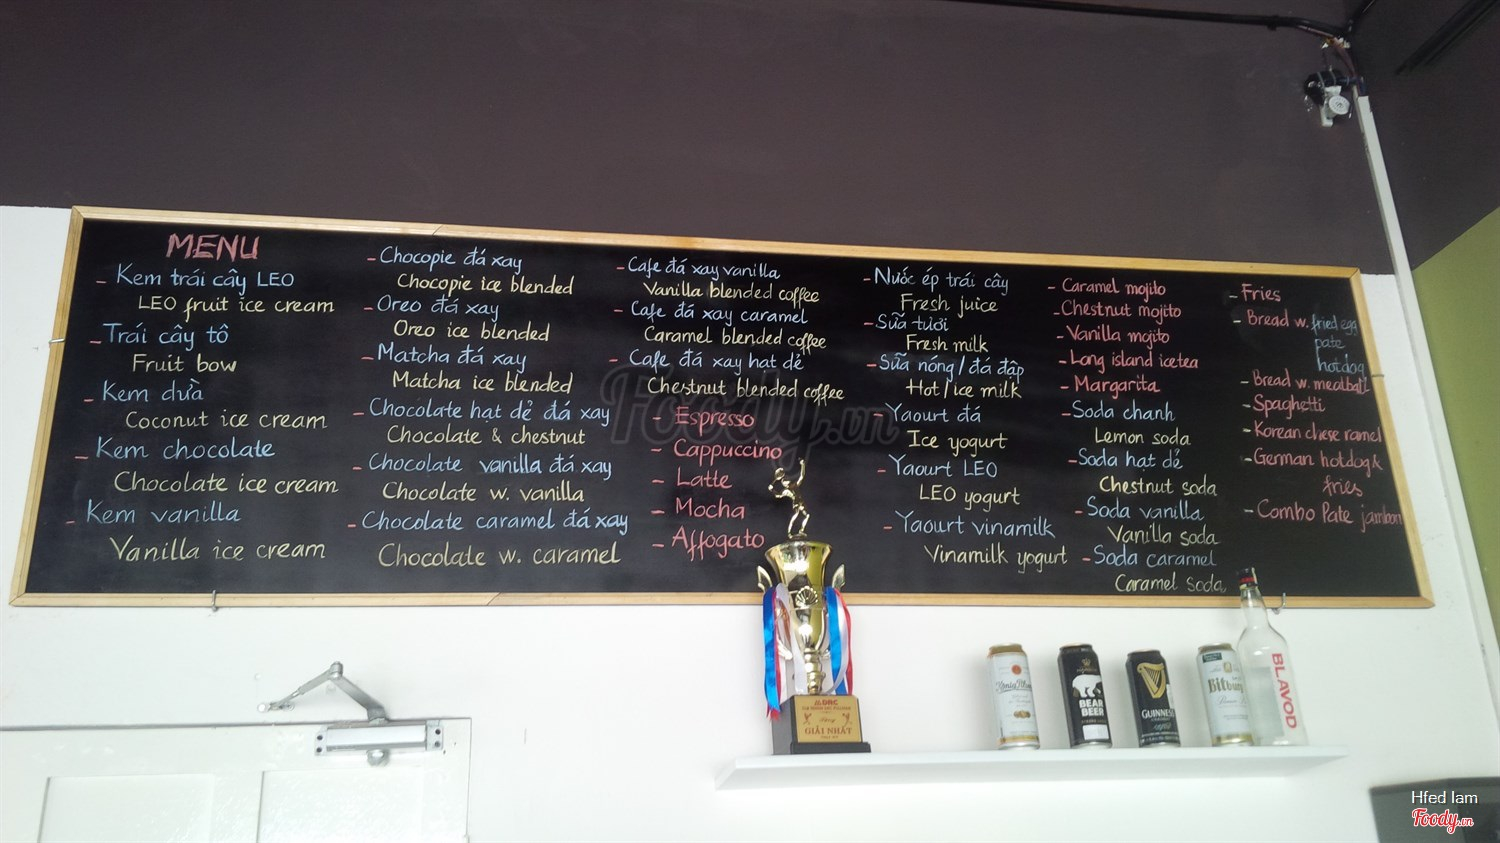 MENU
- Kem trái cây LEO
LEO fruit ice cream
- Trái cây tô
Fruit bow
- Kem dừa
Coconut ice cream
- Kem chocolate
Chocolate ice cream
- Kem vanilla
Vanilla ice cream
- Chocopie đá xay
Chocopie ice blended
- Oreo đá xay
Oreo ice blended
- Matcha đá xay
Matcha ice blended
- Chocolate hạt dẻ đá xay
Chocolate & chestnut
- Chocolate vanilla đá xay
Chocolate w. vanilla
- Chocolate caramel đá xay
Chocolate w. caramel
- Cafe đá xay vanilla
Vanilla blended coffee
- Cafe đá xay caramel
Caramel blended coffee
- Cafe đá xay hạt dẻ
Chestnut blended coffee
- Espresso
- Cappuccino
- Latte
- Mocha
- Affogato
- Nước ép trái cây
Fresh juice
- Sữa tươi
Fresh milk
- Sữa nóng / đá đập
Hot / ice milk
- Yaourt đá
Ice yogurt
- Yaourt LEO
LEO yogurt
- Yaourt vinamilk
Vinamilk yogurt
- Caramel mojito
- Chestnut mojito
- Vanilla mojito
- Long island icetea
- Margarita
- Soda chanh
Lemon soda
- Soda hạt dẻ
Chestnut soda
- Soda vanilla
Vanilla soda
- Soda caramel
Caramel soda
- Fries
- Bread w. fried egg
pate
hotdog
- Bread w. meatball
- Spaghetti
- Korean chese ramel
- German hotdog &
fries
- Combo Pate jambon
Foody.vn
BEAR
BEER
GUINNESS
Bitburg
BLAVOD
GIẢI NHẤT
Hfed lam
Foody.vn